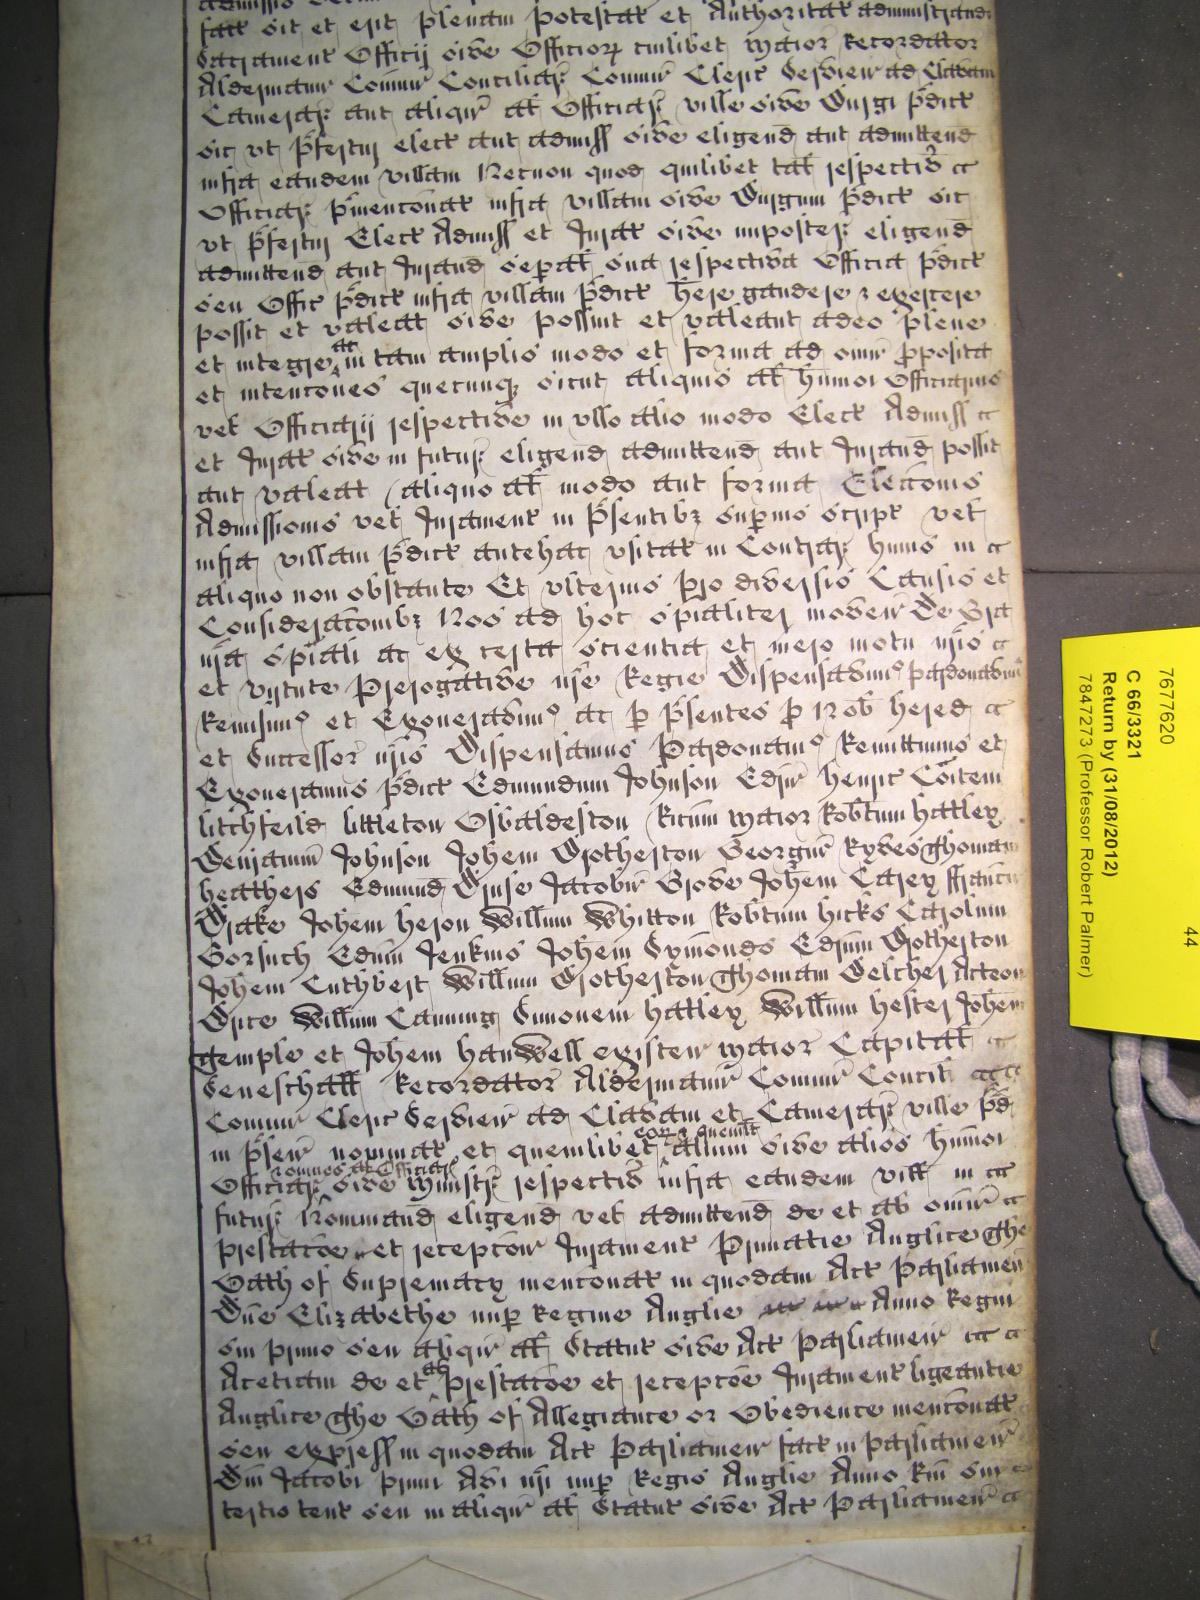 fact sit et erit plenam potestat et Authoritat administrand
Sacrament Officij sive Officior cuilibet Maior Recordator
Aldermanū Comūn Conciliar Comūn Cleric Servien ad Clavam
Camerar aut aliqur al Officiar ville sive Burgi p̄dict
sic ut p̄fertur elect aut admiss sive eligend aut admittend
infra eandem villam Necnon quod quilibet tal respectiv
Officiar p̄menconat infra villam sive Burgum p̄dict sic
ut p̄fertur Elect Admiss et Jurat sive imposter eligend
admittend aut Jurand seperal sua respectiva Officia p̄dict
seu Offic p̄dict infra villam p̄dict here gaudere & exercere
possit et valeat sive possint et valeant adeo plene
et integre ac in tam amplis modo et forma ad omn pposita
et intencones quecunq sicut aliquis al humoi Officiarius
vel Officiarij respective in ullo alio modo Elect Admiss
et Jurat sive in futur eligend admittend aut Jurand possit
aut valeat aliquo al modo aut forma Eleccionis
Admissionis vel Jurament in p̄sentibz superius script vel
infra villam p̄dict antehac usitat in Contrar huius in
aliquo non obstante Et ulterius pro diversis Causis et
Consideraconibz Nos ad hoc spialiter moven De Gra
nra spiali ac ex certa scientia et mero motu nris
et virtute Prerogative nre Regie Dispensavim pardonavim
Remisim et Exoneravim ac p p̄sentes p Nob hered
et Successor nris Dispensamus Pardonam Remittimus et
Exoneramus p̄dict Edmundum Johnson Edrū Henric Comitem
Litchfeild Littleton Osbaldeston Ricum Maior Robtum Hatley
Benjamin Johnson Johem Brotherton Georgiū Ryves Thomam
Heathers Edmund Bruse Jacobū Grove Johem Carey Franc
Drake Johem Heron Willum Whitton Robtum Hicks Carolum
Gorsuch Edrum Jenkins Johem Symonds Edrum Brotherton
Johem Cuthbert Willum Brotherton Thomam Belcher Acteon
Brice Willum Canning Simonem Hatley Willum Hester Johem
Temple et Johem Hanwell existen Maior Capital
Seneschall Recordator Aldermanū Comūn Concil
Comūn Cleric Servien ad Clavam et Camerar ville p̄d
in p̄sen nominat et quemlibet eor & quemlt alium sive alios humoi
Officiar omnes al Officiar sive Ministr respectiv infra eandem vill in
futur Nominand eligend vel admittend de et ab omn
prestacoe et recepcoe Jurament Primatie Anglice The
Oath of Supremacy menconat in quodam Act Parliamen
Dne Elizabethe nup Regine Anglie Anno Regni
sui primo seu aliqur al Statut sive Act Parliamen
Acetiam de et ab prestacoe et recepcoe Jurament ligeantie
Anglice The Oath of Allegiance or Obedience menconat
seu express in quodam Act Parliamen fact in parliamen
Dni Jacobi primi Avi nri nup Regis Anglie Anno Rni sui
tertio tent seu in aliqur al Statut sive Act Parliamen
7677620
C 66/3321
Return by (31/08/2012)
7847273 (Professor Robert Palmer)
44